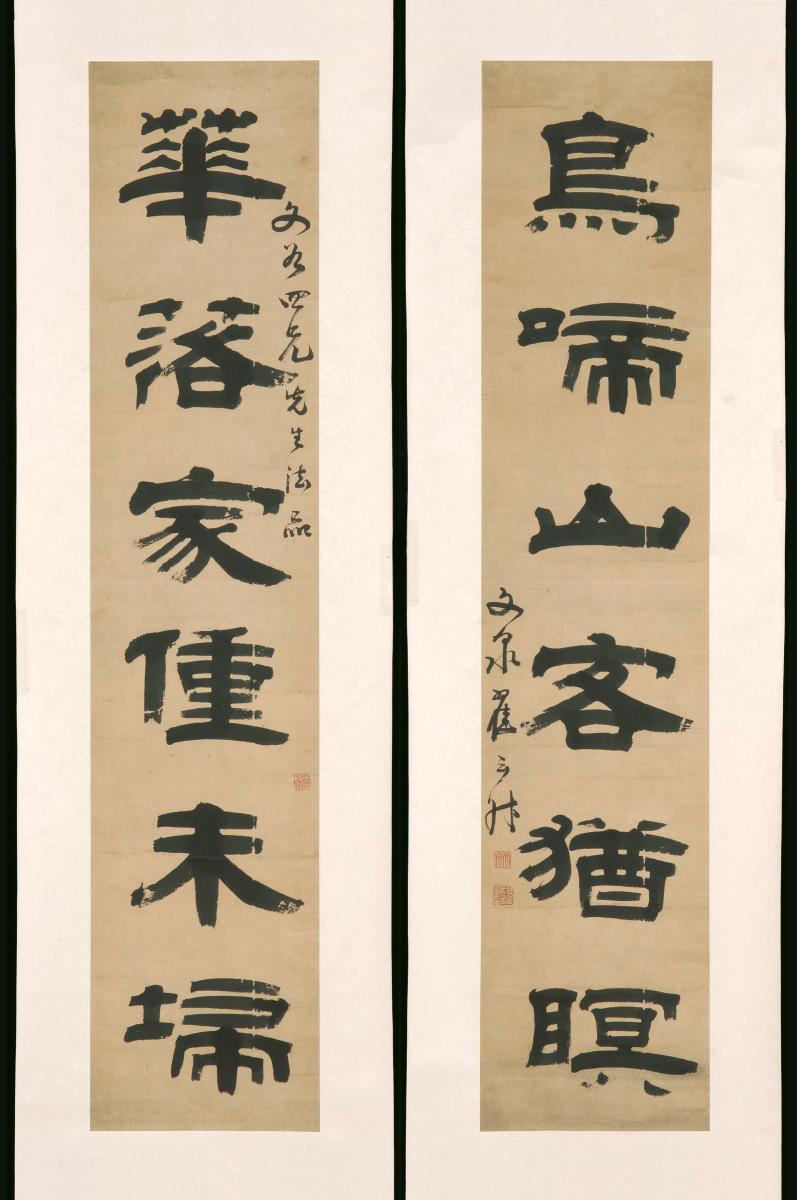 鳥啼山客猶瞑
文泉翟云升
華落家僮未埽
文四兄先生法品